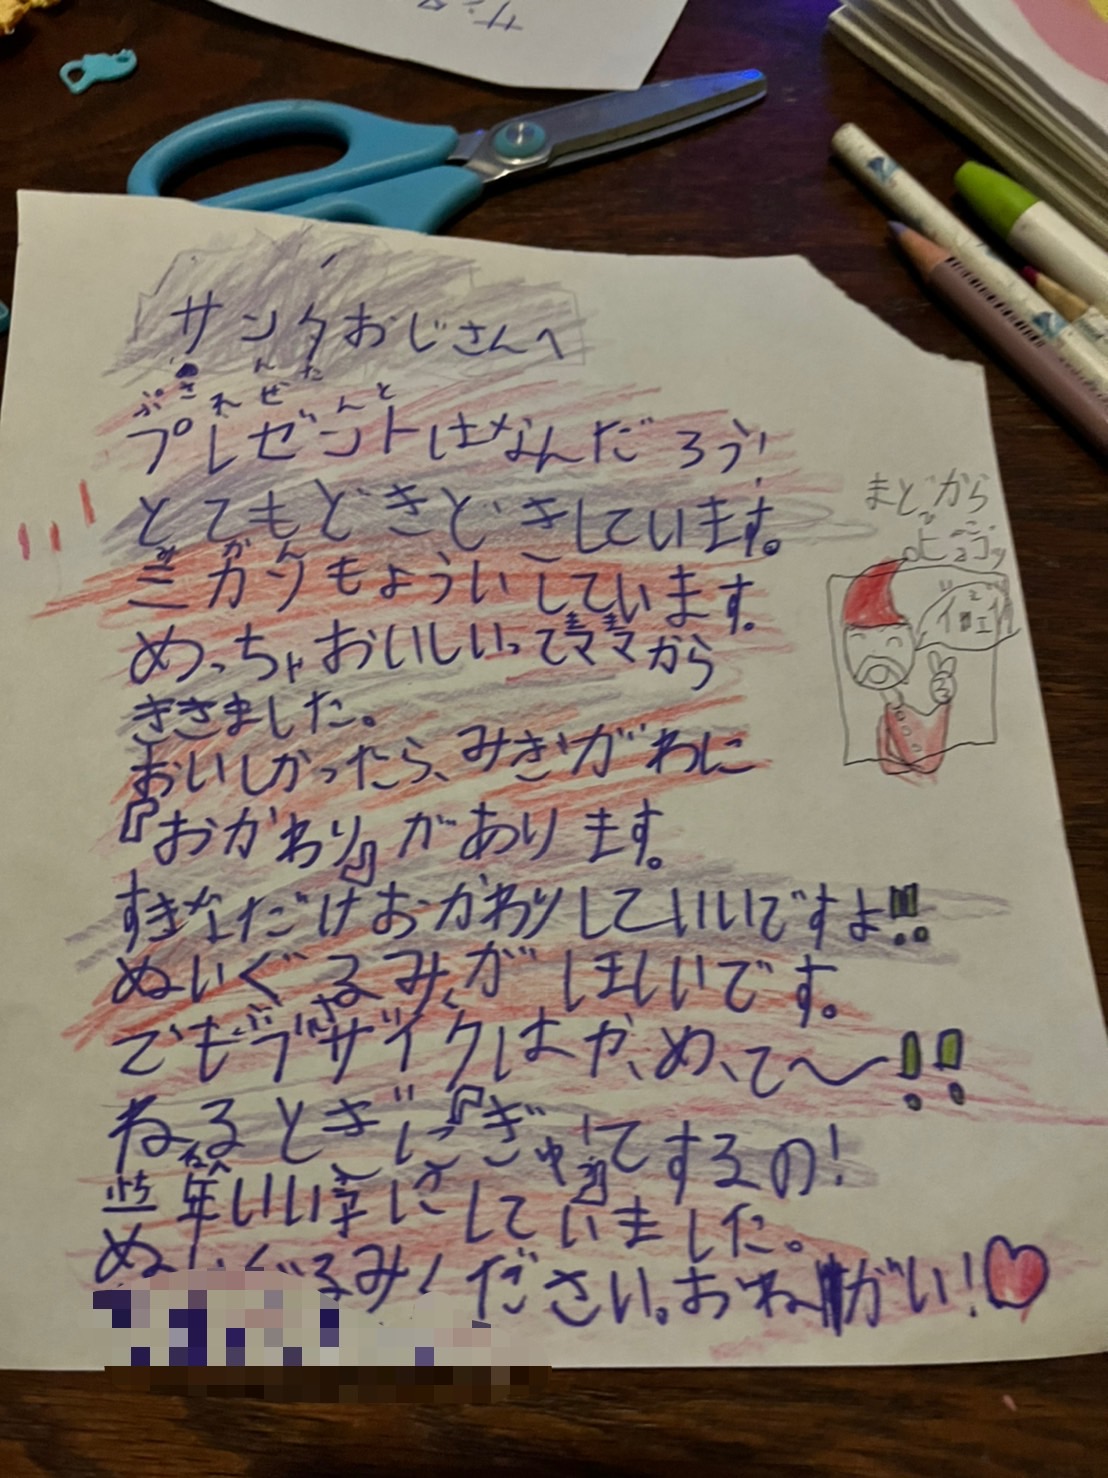 サンタおじさんへ
さんた
ぷれぜんと
プレゼントはなんだろう!
とてもどきどきしています。
みかん
ミカンもよういしています。
まま
めっちゃおいしいってママから
ききました。
おいしかったら、みぎがわに
『おかわり』があります。
すきなだけおかわりしていいですよ!!!
ぬいぐるみ、がほしいです。
でもブサイクはや、め、て〜!!
ねるときに『ぎゅう』てするの!
ねん こ
年いい子にしていました。
ぬいぐるみください。おねがい!
まどから